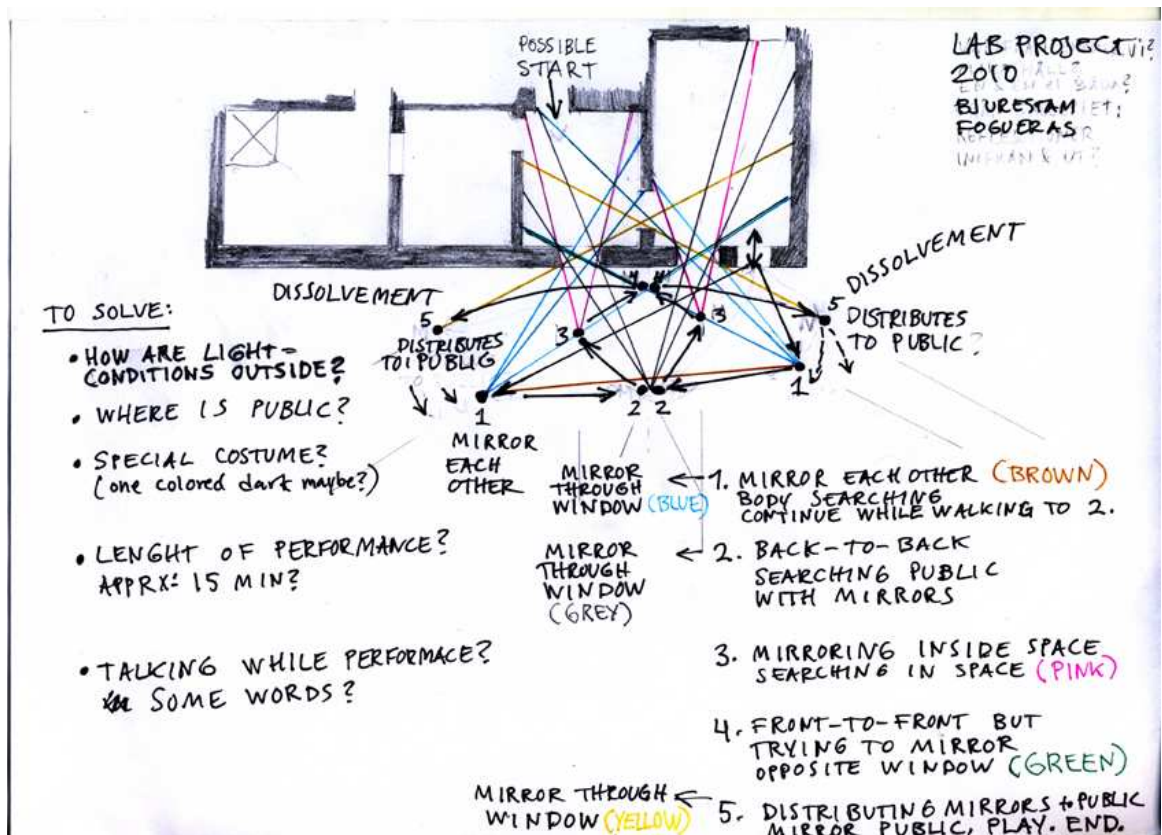 POSSIBLE
START
LAB PROJECT
2010
BJURESTAM
FOGUERAS
DISSOLVEMENT
5
DISTRIBUTES
TO PUBLIC
DISSOLVEMENT
5
DISTRIBUTES
TO PUBLIC?
4
4
3
3
1
2 2
1
MIRROR
EACH
OTHER
TO SOLVE:
• HOW ARE LIGHT-
CONDITIONS OUTSIDE?
• WHERE IS PUBLIC?
• SPECIAL COSTUME?
(one colored dark maybe?)
• LENGHT OF PERFORMANCE?
APPRX: 15 MIN?
• TALKING WHILE PERFORMACE?
SOME WORDS?
MIRROR
THROUGH
WINDOW (BLUE)
MIRROR
THROUGH
WINDOW
(GREY)
1. MIRROR EACH OTHER (BROWN)
BODY SEARCHING
CONTINUE WHILE WALKING TO 2.
2. BACK-TO-BACK
SEARCHING PUBLIC
WITH MIRRORS
3. MIRRORING INSIDE SPACE
SEARCHING IN SPACE (PINK)
4. FRONT-TO-FRONT BUT
TRYING TO MIRROR
OPPOSITE WINDOW (GREEN)
MIRROR THROUGH
WINDOW (YELLOW)
5. DISTRIBUTING MIRRORS to PUBLIC
MIRROR PUBLIC, PLAY. END.